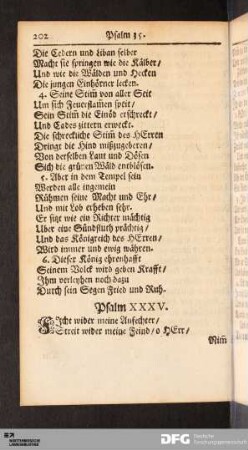 202 Psalm 35.
Die Cedern und Liban selber
Macht sie springen wie die Kälber/
Und wie die Wälden und Hecken
Die jungen Einhörner lecken.
4. Seine Stim̃ von aller Seit
Um sich Feuerflam̃en speit/
Sein Stim̃ die Einöd erschreckt/
Und Cades zittern erweckt.
Die schreckliche Stim̃ des HErren
Dringt die Hind mißzugeberen/
Von derselben Laut und Dösen
Sich die grünen Wäld entblösen.
5. Aber in dem Tempel sein
Werden alle ingemein
Rühmen seine Macht und Ehr/
Und mit Lob erheben sehr.
Er sitzt wie ein Richter mächtig
Uber eine Sündfluth prächtig/
Und das Königreich des HErren/
Wird immer und ewig währen.
6. Dieser König ehrenhafft
Seinem Volck wird geben Krafft/
Ihm verleyhen noch dazu
Durch sein Segen Fried und Ruh.
Psalm XXXV.
Ficht wider meine Anfechter/
Streit wider meine Feind/ o HErr/
Nim̃
BAYERISCHE
STAATSBIBLIOTHEK
DFG Deutsche
Forschungsgemeinschaft